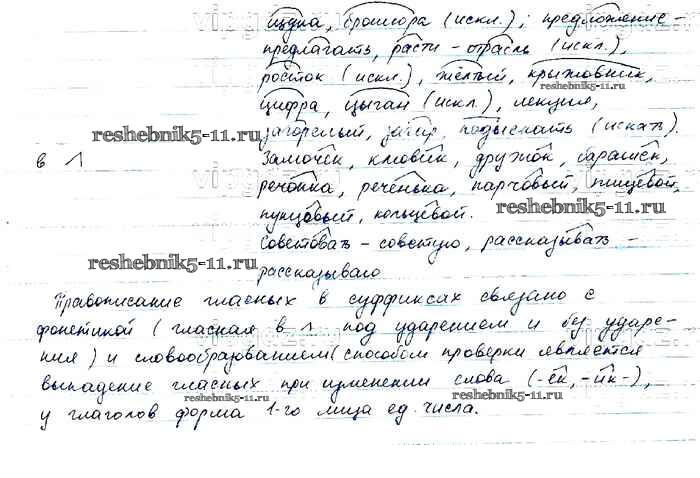 щука, брошюра (искл.); предложение -
предлагать, расти - отрасль (искл.),
росток (искл.), жёлтый, крыжовник,
цифра, цыган (искл.), лекция,
загорелый, загар, подыскать (искать).
в ^ Замочек, ключик, дружок, барашек,
речонка, реченька, парчовый, пищевой,
пунцовый, кольцевой.
Советовать - советую, рассказывать -
рассказываю
Правописание гласных в суффиксах связано с
фонетикой (гласная в ^ под ударением и без ударе-
ния) и словообразованием (способом проверки является
выпадение гласных при изменении слова (-ек, -ик-),
у глаголов форма 1-го лица ед. числа.
reshebnik5-11.ru
reshebnik5-11.ru
reshebnik5-11.ru
reshebnik5-11.ru
reshebnik5-11.ru
reshebnik5-11.ru